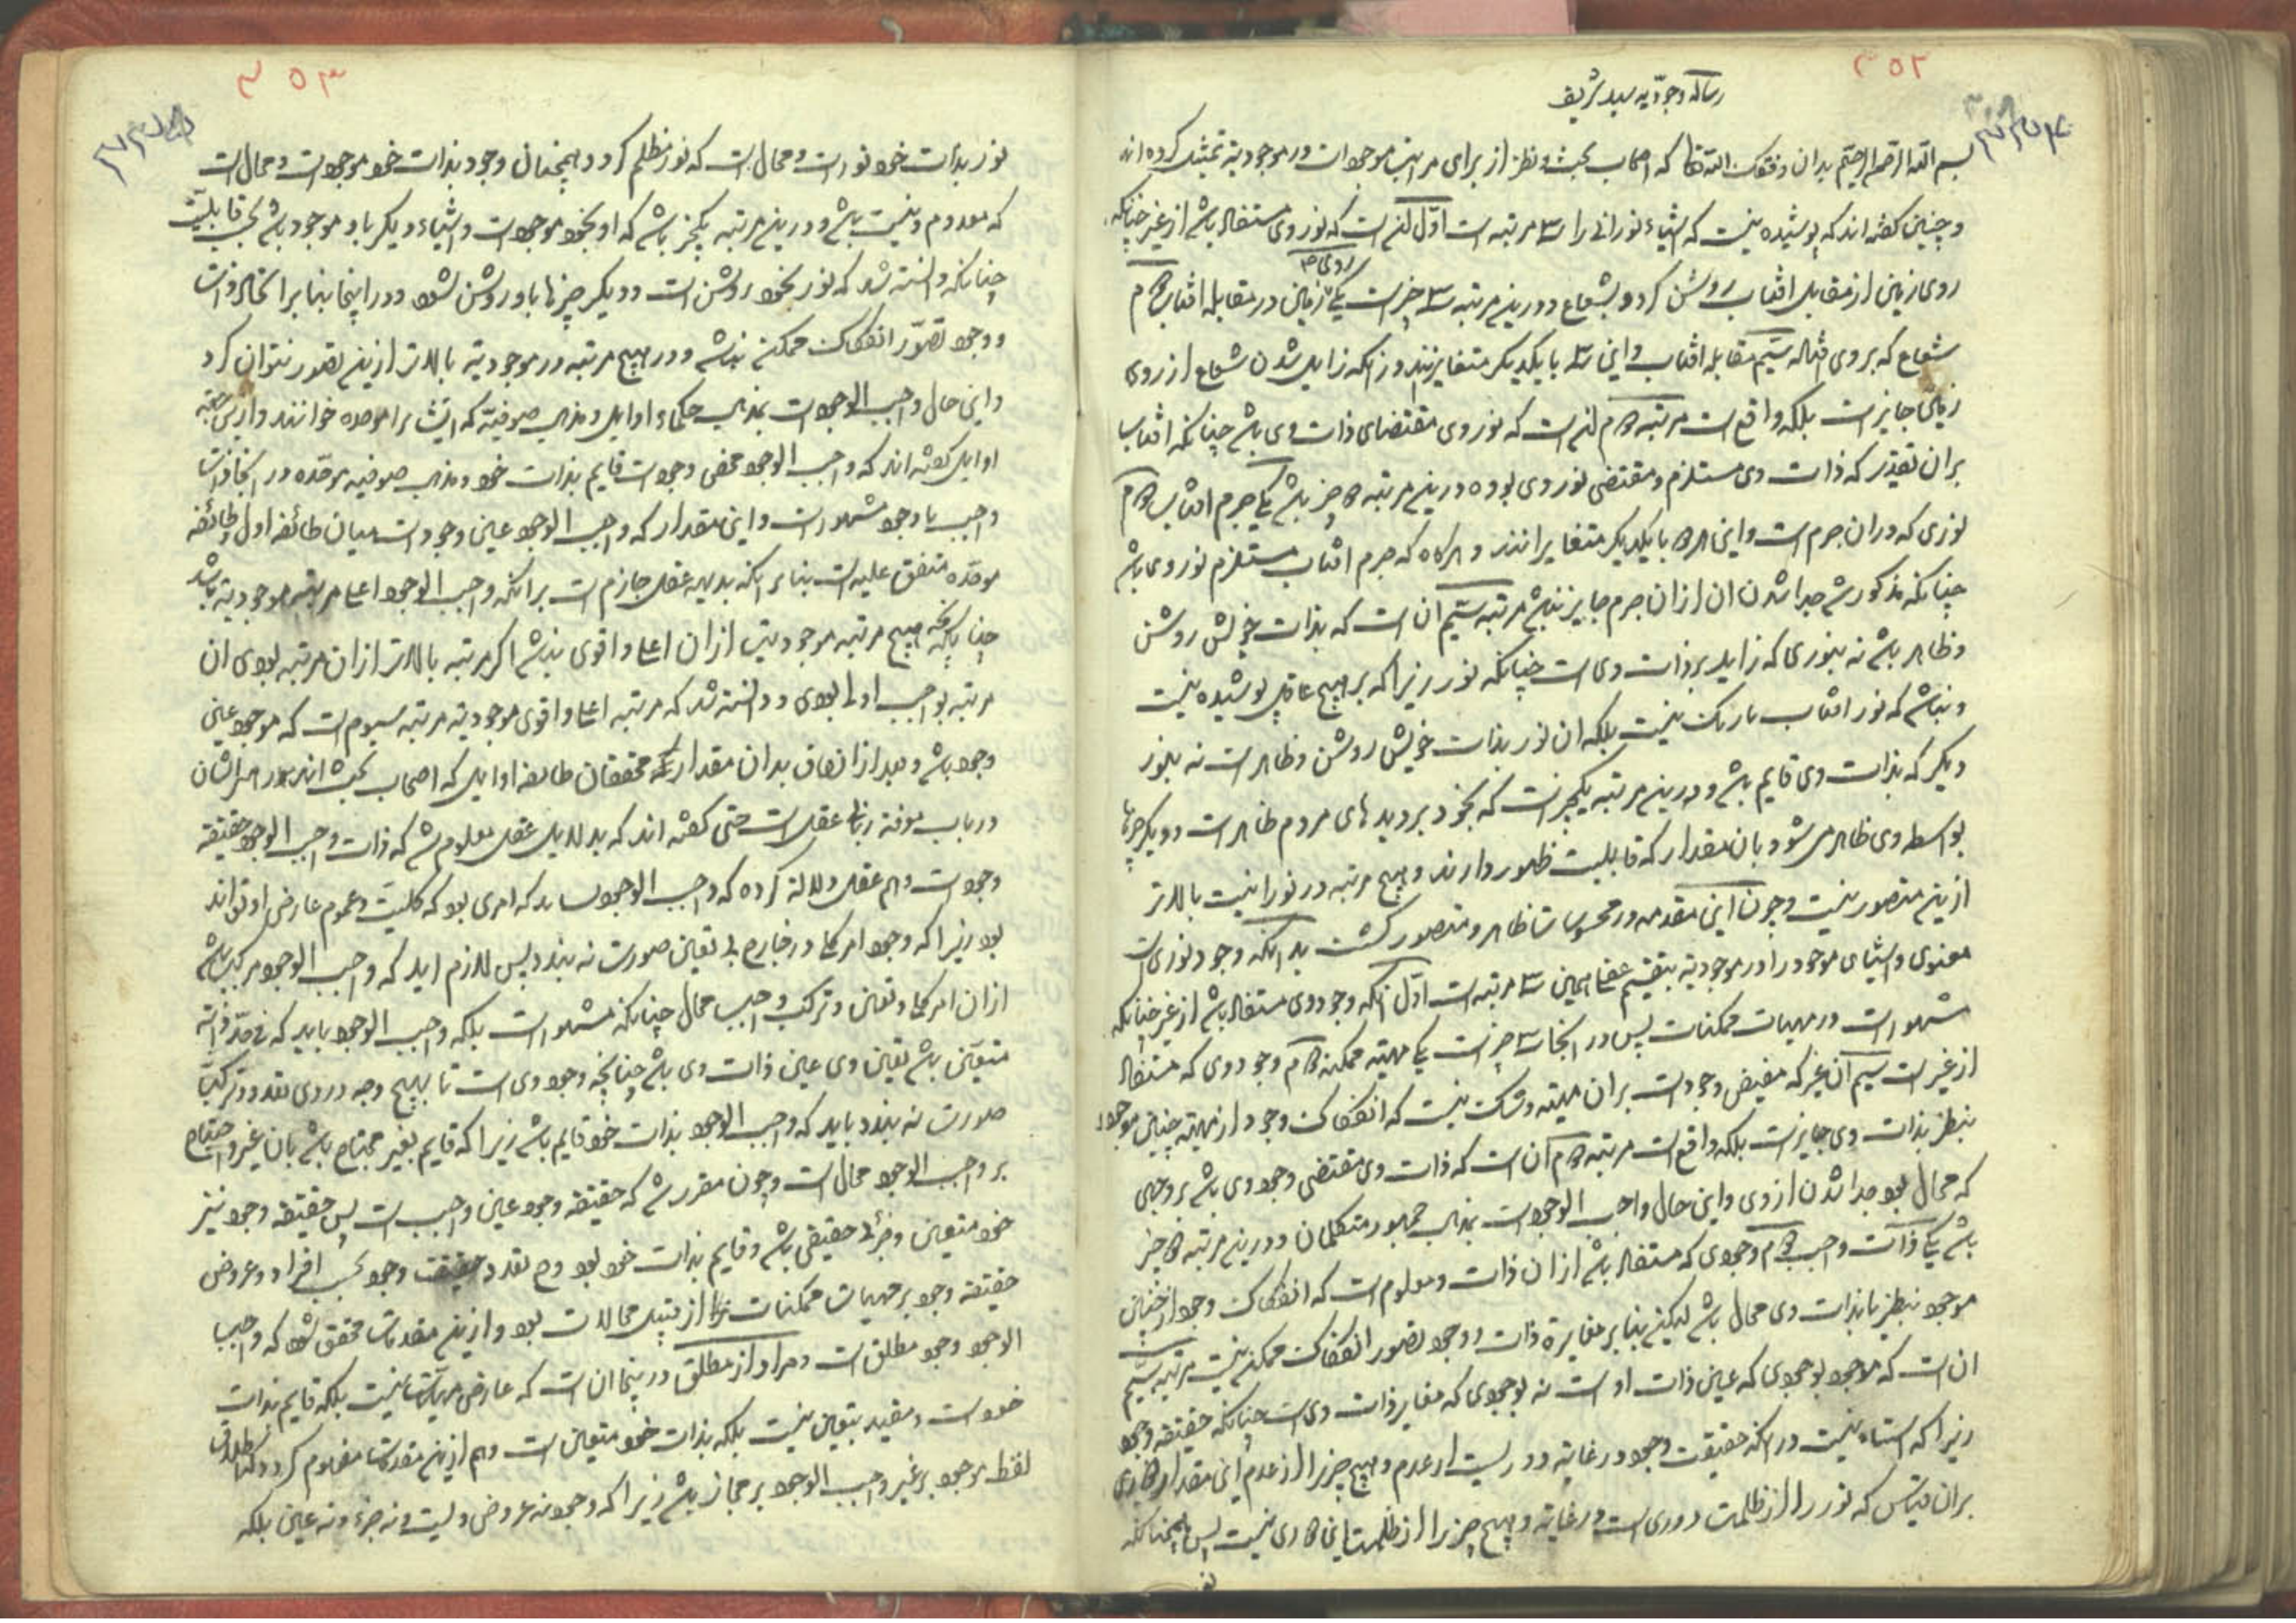 ۳۵۲
رساله وجودیه سید شریف
بسم الله الرحمن الرحیم بدان وفقک الله تعالی که اصحاب بحث و نظر از برای مراتب موجودات در موجودیة تمثیل کرده اند
و چنین گفته اند که پوشیده نیست که اشیاء نورانی را سه مرتبه است اوّل آنست که نور وی مستفاد باشد از غیر چنانکه
روی زمین از مقابل افتاب روشن کردد بشعاع و درین مرتبه سه چیز است یکی روی زمین در مقابله افتاب دوم
شعاع که بر وی فتاده سیّم مقابله افتاب و این سه با یکدیکر متغایرند و زانکه زایل شدن شعاع از روی
زمین جایز است بلکه واقع است مرتبه دوم آنست که نور وی مقتضای ذات وی باشد چنانکه افتاب
بران تقدیر که ذات وی مستلزم و مقتضی نور وی بوده درین مرتبه دو چیز باشد یکی جرم افتاب دوم
نوری که در ان جرم است و این هر دو با یکدیکر متغایرانند و هرکاه که جرم افتاب مستلزم نور وی باشد
چنانکه مذکور شد جدا شدن ان ازان جرم جایز نباشد مرتبه سیّم آن است که بذات خویش روشن
و ظاهر باشد نه بنوری که زاید بر ذات وی است چنانکه نور زیرا که بر هیچ عاقل پوشیده نیست
و نباشد که نور افتاب تاریک نیست بلکه ان نور بذات خویش روشن و ظاهر است نه بنور
دیکر که بذات وی قایم باشد و درین مرتبه یکچیز است که بخود بر دیدهای مردم ظاهر است و دیکر چیزها
بواسطه وی ظاهر می شود بان مقدار که قابلیت ظهور دارند و هیچ مرتبه در نورانیت بالاتر
ازین متصور نیست و چون این مقدمه در محسوسات ظاهر و متصور کشت بدانکه وجود نوری است
معنوی و اشیای موجود را در موجودیة بتقسیم عقلی همین سه مرتبه است اوّل آنکه وجود وی مستفاد باشد از غیر چنانکه
مشهور است در مهیات ممکنات پس در اینجا سه چیز است یکی مهیته ممکنه دوم وجود وی که مستفاد
از غیر است سیم آن غیر که مفیض وجود است بران مهیته و شک نیست که انفکاک وجود از مهیته چنین موجود
بنظر بذات وی جایز است بلکه واقع است مرتبه دوم آن است که ذات وی مقتضی وجود وی باشد بر وجهی
که محال بود جدا شدن از وی و این حال واجب الوجود است بمذهب جمهور متکلمان و درین مرتبه دو چیز
باشد یکی ذات واجب دوم وجودی که مستفاد باشد از ان ذات و معلوم است که انفکاک وجود از چنین
موجود بنظر با ذات وی محال باشد لیکن بنابر مغایرة ذات و وجود تصور انفکاک ممکن نیست مرتبه سیّم
ان است که موجود بوجودی که عین ذات او است نه بوجودی که مغایر ذات وی است چنانکه حقیقة وجود
زیرا که اشتباه نیست در انکه حقیقت وجود در غایة دوریست از عدم و هیچ چیز را از عدم این مقدار دوری
بران قیاس که نور را از ظلمت دوری است در غایة و هیچ چیز را از ظلمت این دوری نیست پس همچنانکه
۳۵۳
نور بذات خود نورست و محال است که نور مظلم کردد و همچنان وجود بذات خود موجودست و محال است
که معدوم و نیست باشد و درین مرتبه یکچیز باشد که او بخود موجودست و اشیاء دیکر باو موجود باشد بحسب قابلیت
چنانکه دانسته شد که نور بخود روشن است و دیکر چیزها باو روشن شود و در اینجا بنابر اتحاد ذات
و وجود تصوّر انفکاک ممکن نباشد و در هیچ مرتبه در موجودیة بالاتر ازین تصور نتوان کرد
و این حال واجب الوجودست بمذهب حکماء اوایل و مذهب صوفیة که ایشانرا موحده خوانند
اوایل کفته اند که واجب الوجود محض وجودست قایم بذات خود و مذهب صوفیه موحّده در اتحاد ذات
واجب با وجود مشهورست و این مقدار که واجب الوجود عین وجودست میان طائفه اول و طائفه
موحّده متفق علیه است بناء برانکه بدیهه عقل جازم است برانکه واجب الوجود اعلی مراتب موجودیة باشد
چنانکه هیچ مرتبه موجودیت ازان اعلی و اقوی نباشد اکر مرتبه بالاتر ازان مرتبه بودی ان
مرتبه بواجب اولی بودی و دانسته شد که مرتبه اعلی و اقوی موجودیة مرتبه سیوم است که موجود عین
وجود باشد و بعد از اتفاق بدان مقدار که محققان طایفه اوایل که اصحاب بحث اند
در باب معرفة ربانی عقل است حتی کفته اند که بدلایل عقل معلوم شد که ذات واجب الوجود حقیقة
وجودست و هم عقل دلالة کرده که واجب الوجود نشاید که امری بود که کلیت و عموم عارض او تواند
بود زیرا که وجود امر کلی در خارج بی تعین صورت نه بندد پس لازم اید که واجب الوجود مرکب باشد
ازان امر کلی و تعین و ترکب واجب محال چنانکه مشهور است بلکه واجب الوجود باید که فی حدّ ذاته
متعیّن باشد تعین وی عین ذات وی باشد چنانچه وجود وی است تا بهیچ وجه در وی تعدد و ترکب
صورت نه بندد باید که واجب الوجود بذات خود قایم باشد زیرا که قایم بغیر محتاج باشد بان غیر و احتیاج
بر واجب الوجود محال است و چون مقرر شد که حقیقة وجود عین واجب است پس حقیقة وجود نیز
خود متعین و جزئی حقیقی باشد و قایم بذات خود بود و ح تعدد حقیقت وجود بحسب افراد و عروض
حقیقة وجود بر مهیات ممکنات از قبیل محالات بود و ازین مقدمات محقق شود که واجب
الوجود وجود مطلق است و مراد از مطلق درینجا ان است که عارض مهیات نیست بلکه قایم بذات
خودست و مقید بتعین نیست بلکه بذات خود متعین است و هم ازین مقدمات مفهوم کردد که اطلاق
لفظ موجود بر غیر واجب الوجود بر مجاز باشد زیرا که وجود نه عروض ولیست و نه جزء و نه عین بلکه